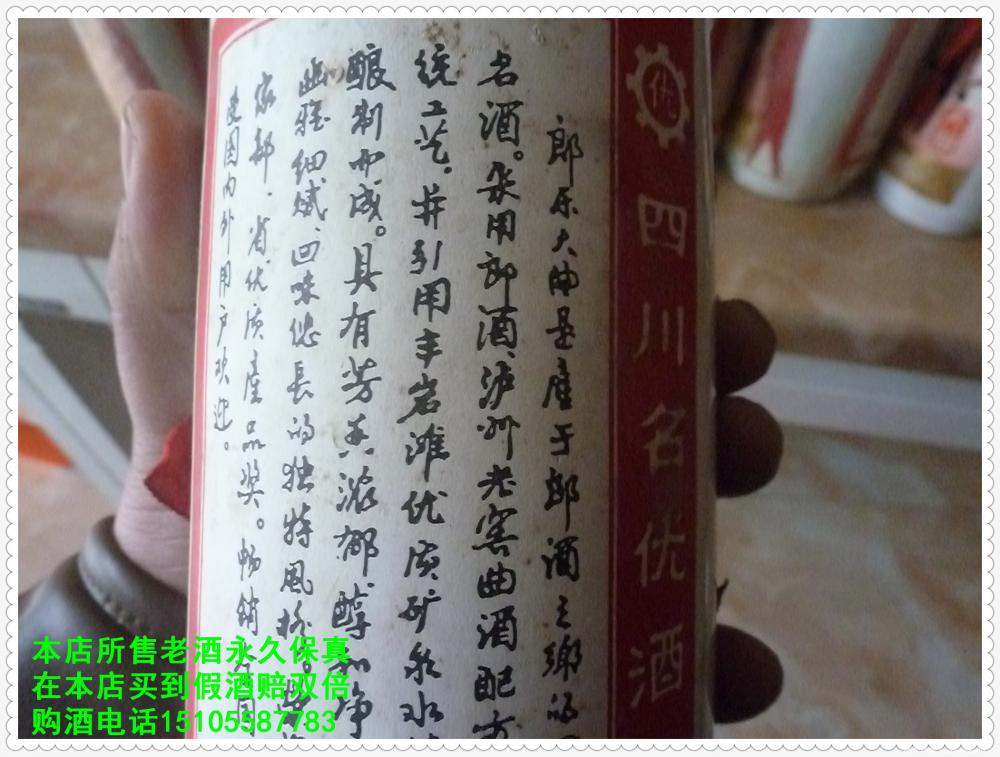 优
四川名优酒
郎乐大曲是產于郎酒之鄉的
名酒。采用郎酒、泸州老窖曲酒配方
统工艺。并引用丰岩滩优质矿泉水
酿制而成。具有芳香浓郁、醇和净
幽雅细腻、回味悠長的独特風格。
家部、省优质產品奖。畅銷
国内外用户欢迎。
本店所售老酒永久保真
在本店买到假酒赔双倍
购酒电话15105587783